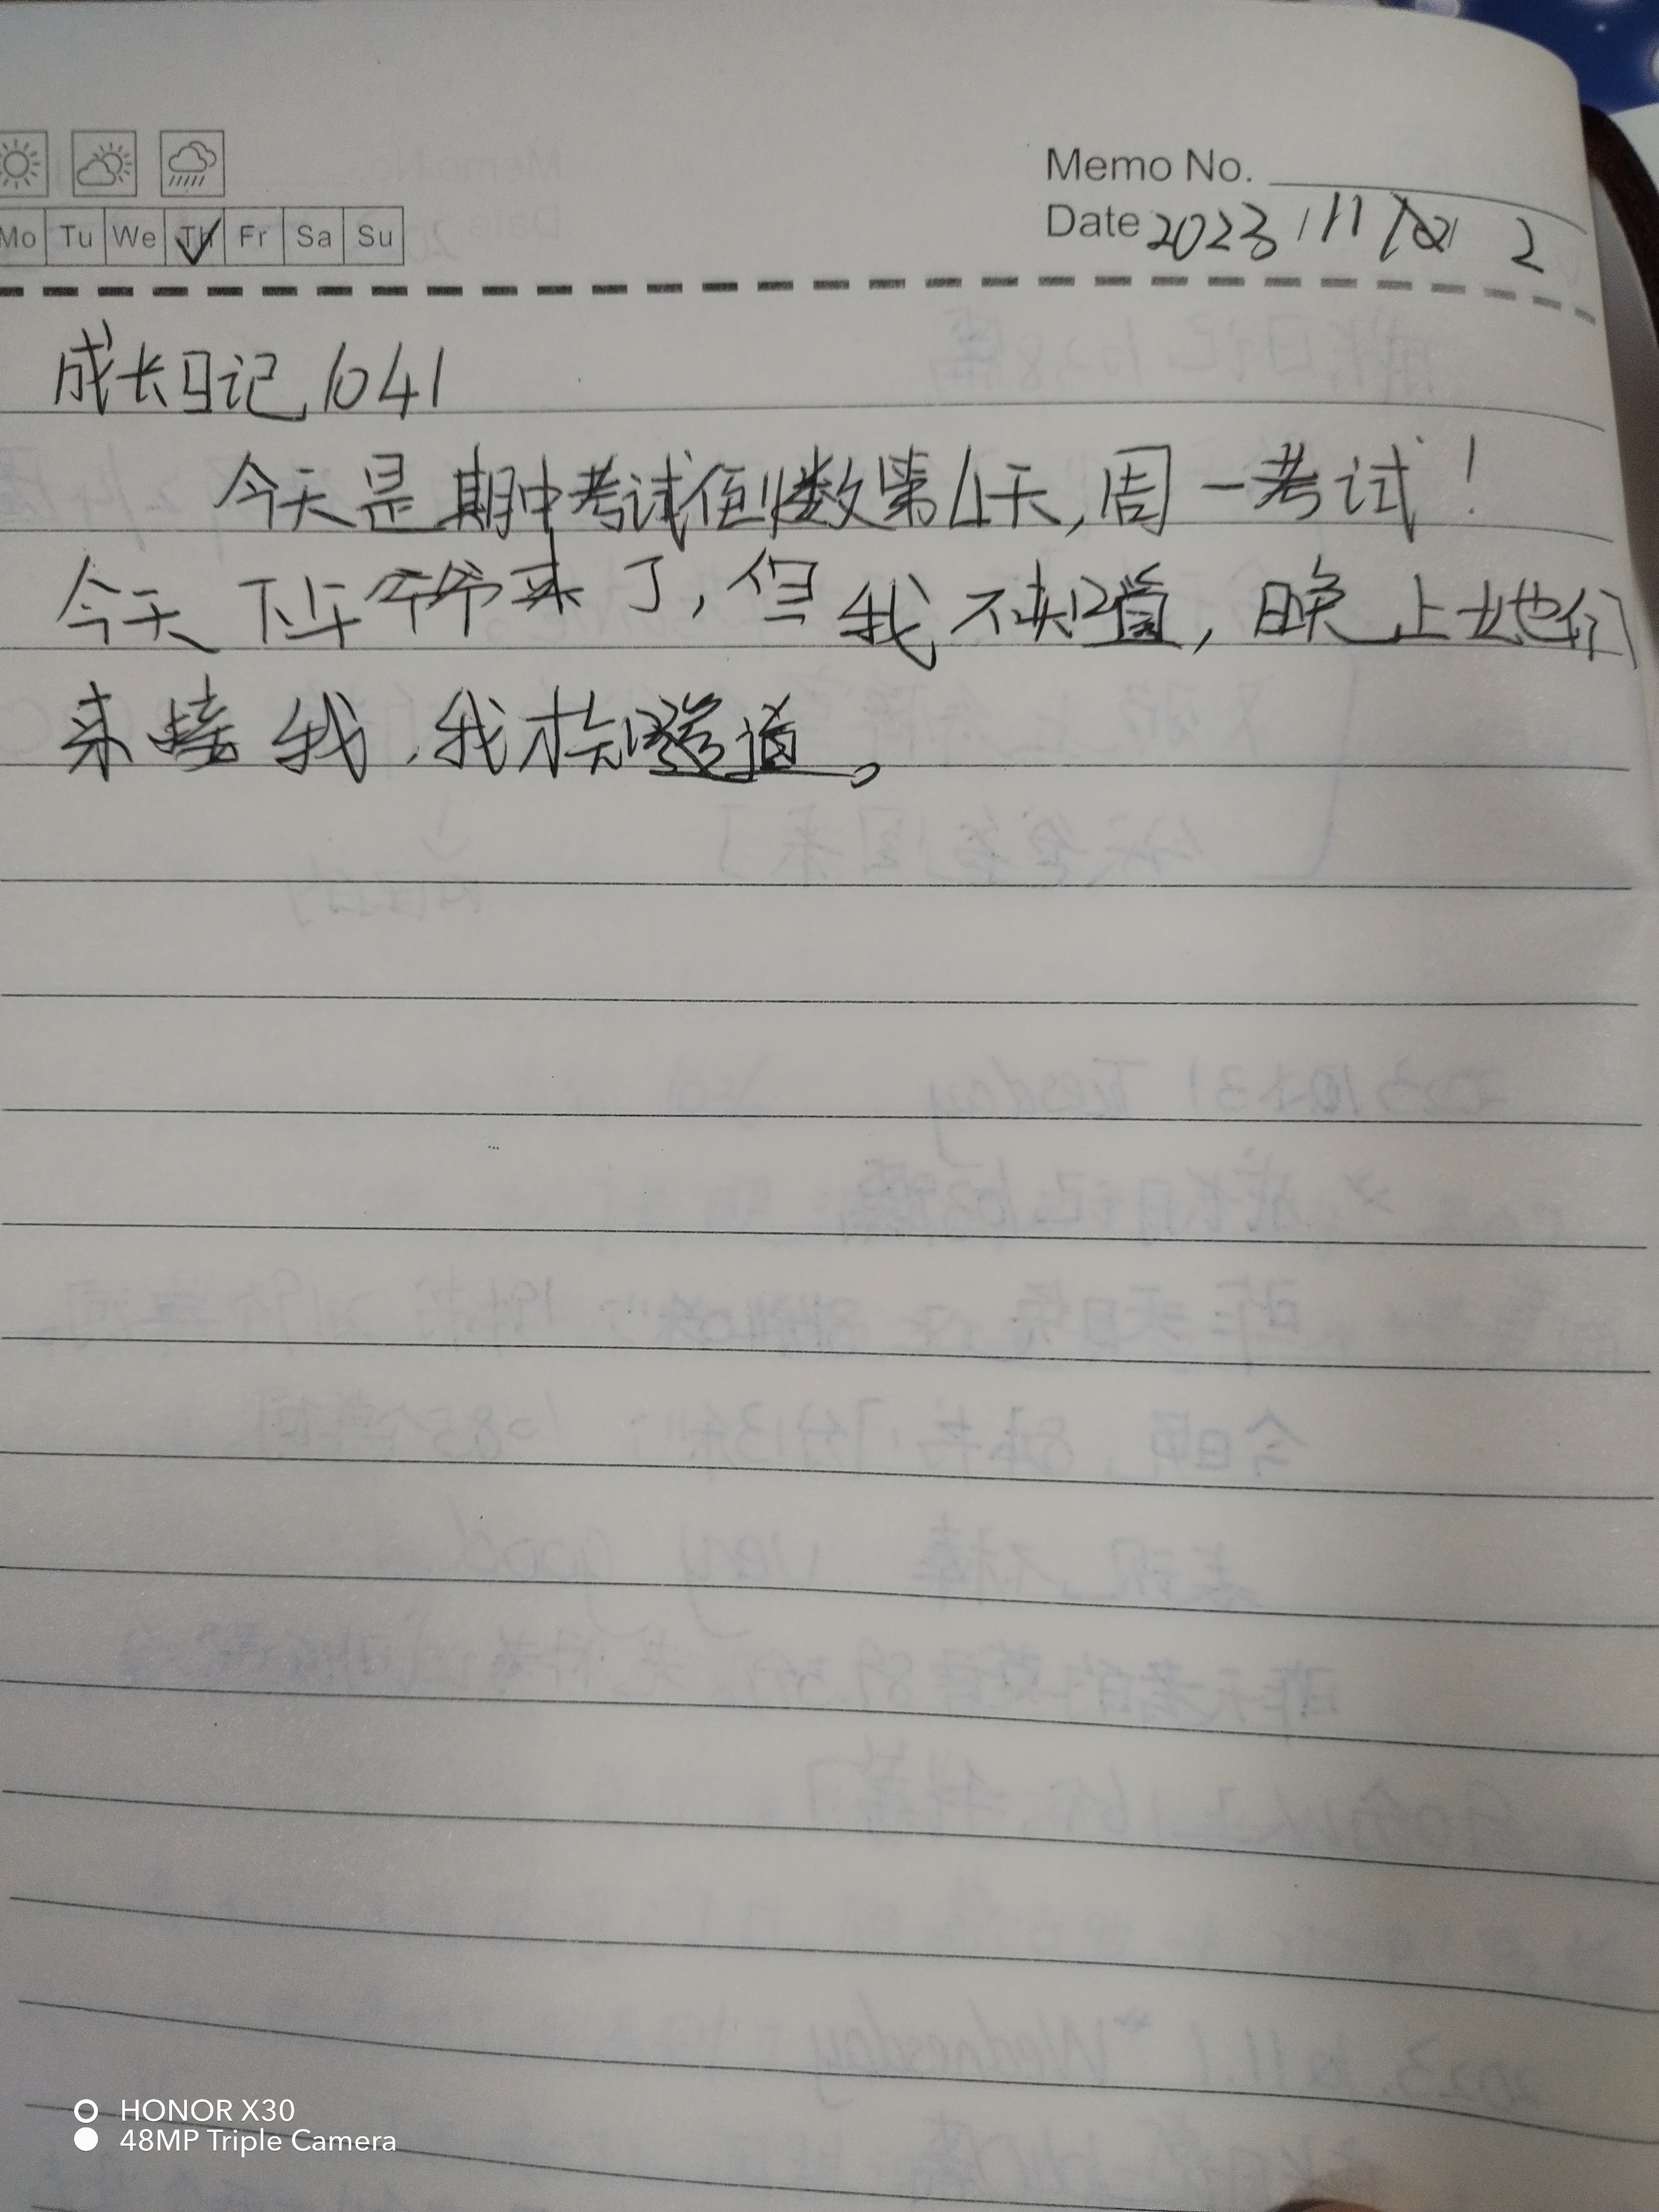 Memo No.
Mo Tu We Th Fr Sa Su
Date 2023/11/ 2
成长日记1041
今天是期中考试倒数第4天,周一考试!
今天下午爷爷来了,但我不知道,晚上他们
来接我,我才知道。
HONOR X30
48MP Triple Camera